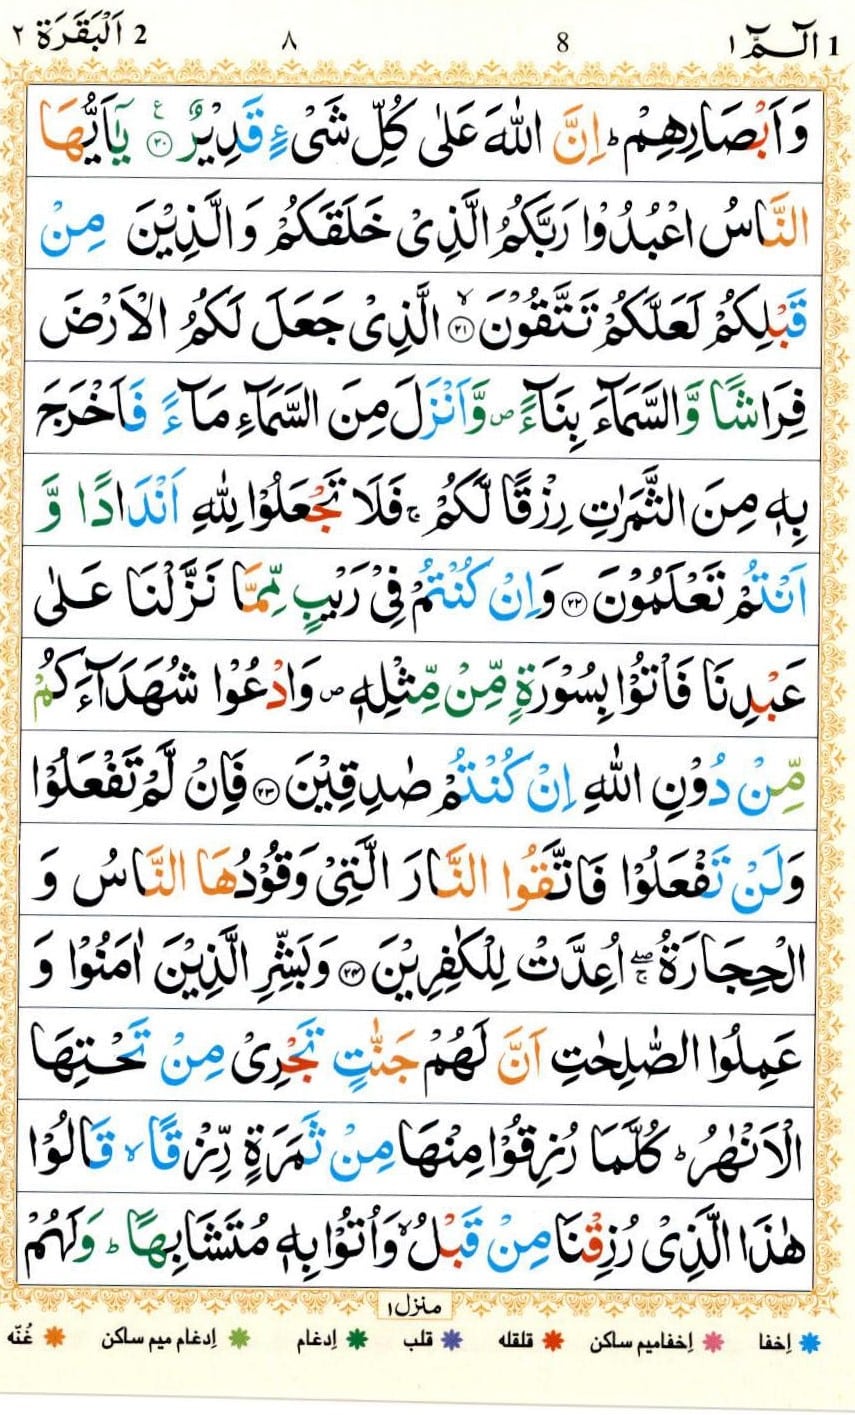 1 الٓـمّٓ ١ 8 ٨ 2 اَلْبَقَرَة ٢
وَاَبْصَارِهِمْ ؕ اِنَّ اللّٰهَ عَلٰى كُلِّ شَىْءٍ قَدِيْرٌ ۧ‏ ﴿۲۰﴾ يٰٓاَيُّهَا
النَّاسُ اعْبُدُوْا رَبَّكُمُ الَّذِىْ خَلَقَكُمْ وَالَّذِيْنَ مِنْ
قَبْلِكُمْ لَعَلَّكُمْ تَتَّقُوْنَ ۙ‏ ﴿۲۱﴾ الَّذِىْ جَعَلَ لَكُمُ الْاَرْضَ
فِرَاشًا وَّالسَّمَآءَ بِنَآءً ص وَّاَنْزَلَ مِنَ السَّمَآءِ مَآءً فَاَخْرَجَ
بِهٖ مِنَ الثَّمَرٰتِ رِزْقًا لَّكُمْ ۚ فَلَا تَجْعَلُوْا لِلّٰهِ اَنْدَادًا وَّ
اَنْتُمْ تَعْلَمُوْنَ ﴿۲۲﴾ وَاِنْ كُنْتُمْ فِىْ رَيْبٍ مِّمَّا نَزَّلْنَا عَلٰى
عَبْدِنَا فَاْتُوْا بِسُوْرَةٍ مِّنْ مِّثْلِهٖ ص وَادْعُوْا شُهَدَآءَكُمْ
مِّنْ دُوْنِ اللّٰهِ اِنْ كُنْتُمْ صٰدِقِيْنَ ﴿۲۳﴾ فَاِنْ لَّمْ تَفْعَلُوْا
وَلَنْ تَفْعَلُوْا فَاتَّقُوا النَّارَ الَّتِىْ وَقُوْدُهَا النَّاسُ وَ
الْحِجَارَةُ ۖۚ اُعِدَّتْ لِلْكٰفِرِيْنَ ﴿۲۴﴾ وَبَشِّرِ الَّذِيْنَ اٰمَنُوْا وَ
عَمِلُوا الصّٰلِحٰتِ اَنَّ لَهُمْ جَنّٰتٍ تَجْرِىْ مِنْ تَحْتِهَا
الْاَنْهٰرُ ؕ كُلَّمَا رُزِقُوْا مِنْهَا مِنْ ثَمَرَةٍ رِّزْقًا ۙ قَالُوْا
هٰذَا الَّذِىْ رُزِقْنَا مِنْ قَبْلُ ۙ وَاُتُوْا بِهٖ مُتَشَابِهًا ؕ وَلَهُمْ
منزل ١
اِخفا اِخفامیم ساکن قلقله قلب اِدغام اِدغام میم ساکن غُنّه